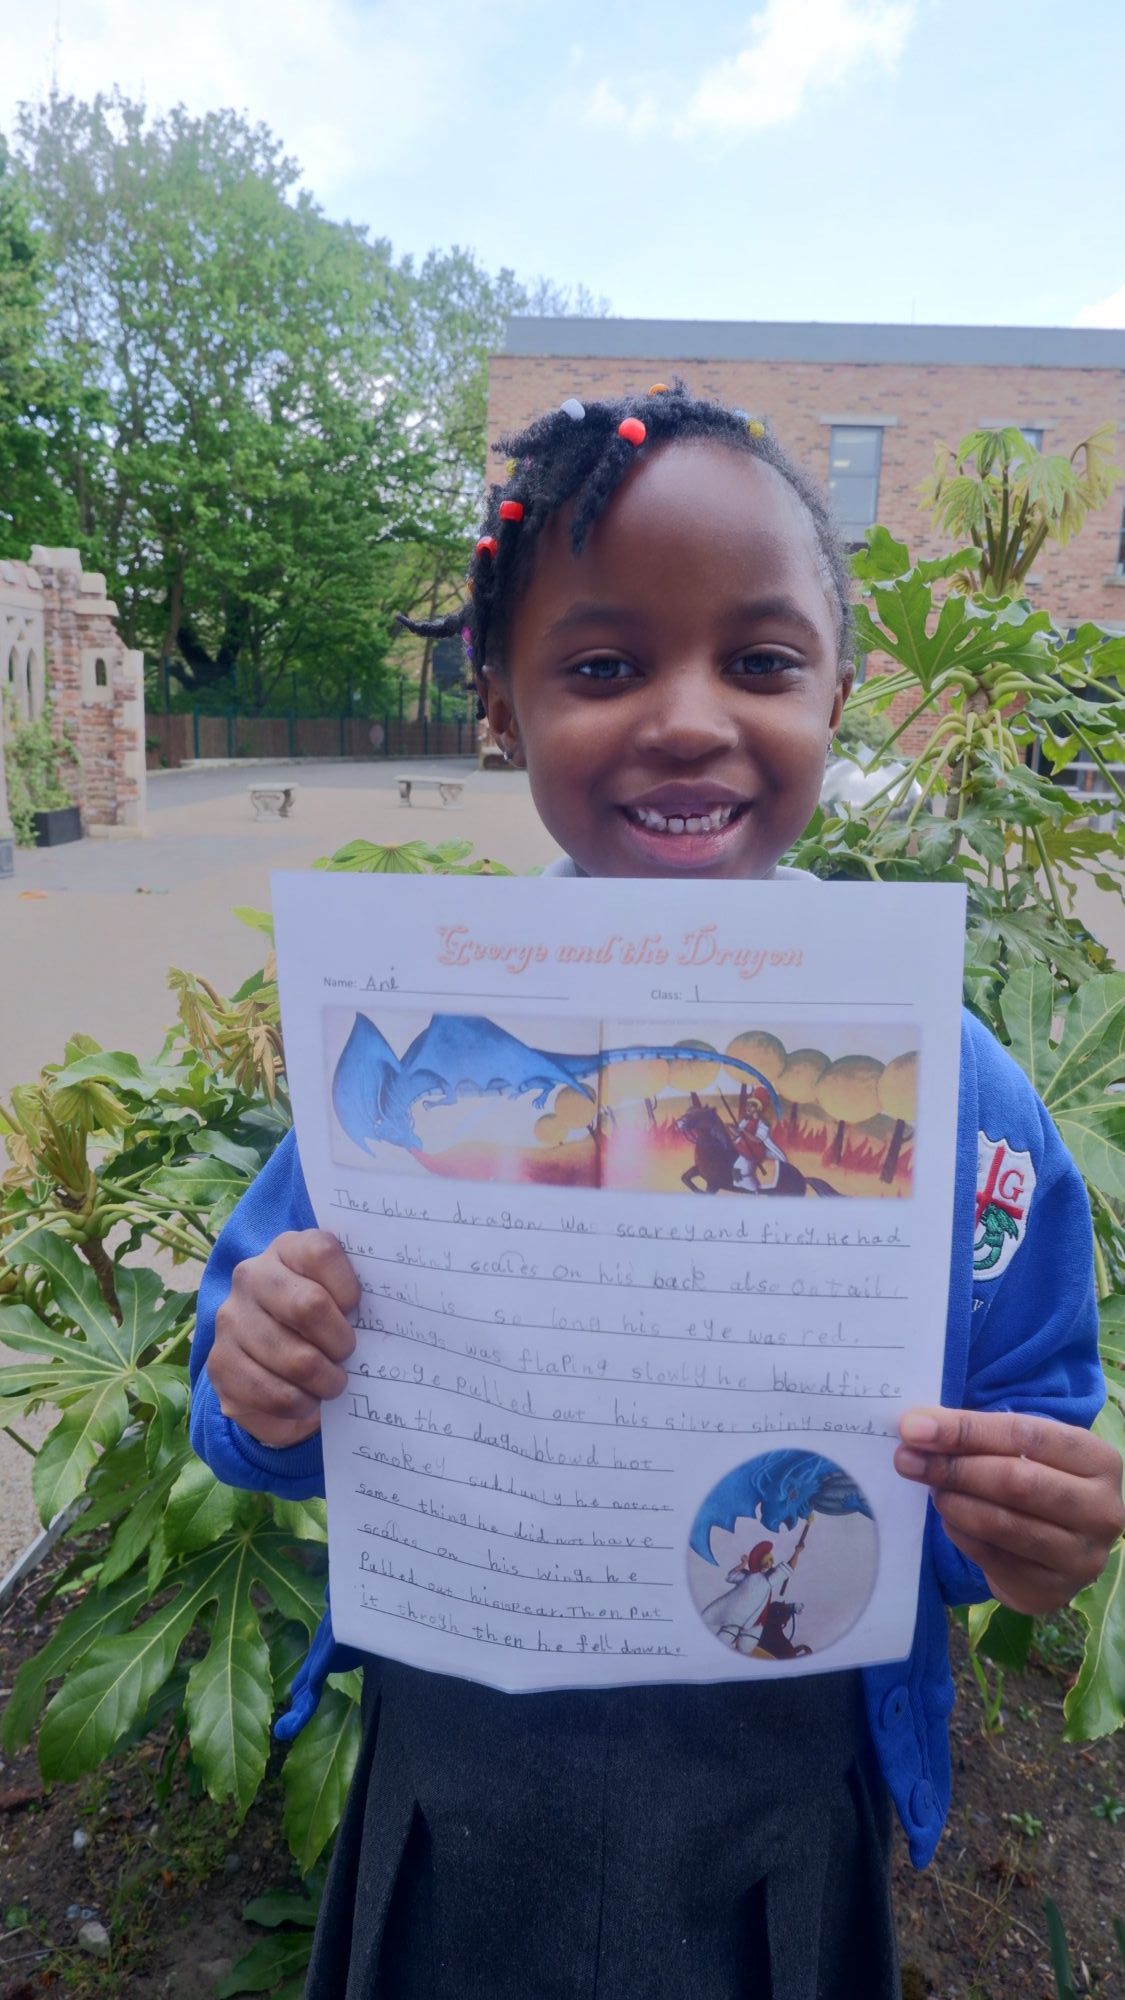 George and the Dragon
Name: Ani Class: 1
The blue dragon was scarey and firey. He had
blue shiny scales on his back also On tail.
tail is so long his eye was red.
his wings was flaping slowly he blowd fire
George pulled out his silver shiny sowd.
Then the dagon blowd hot
smokey suddunly he
some thing he did not have
scales on his wings he
pulled out his spear. Then Put
it throgh then he fell down.
G